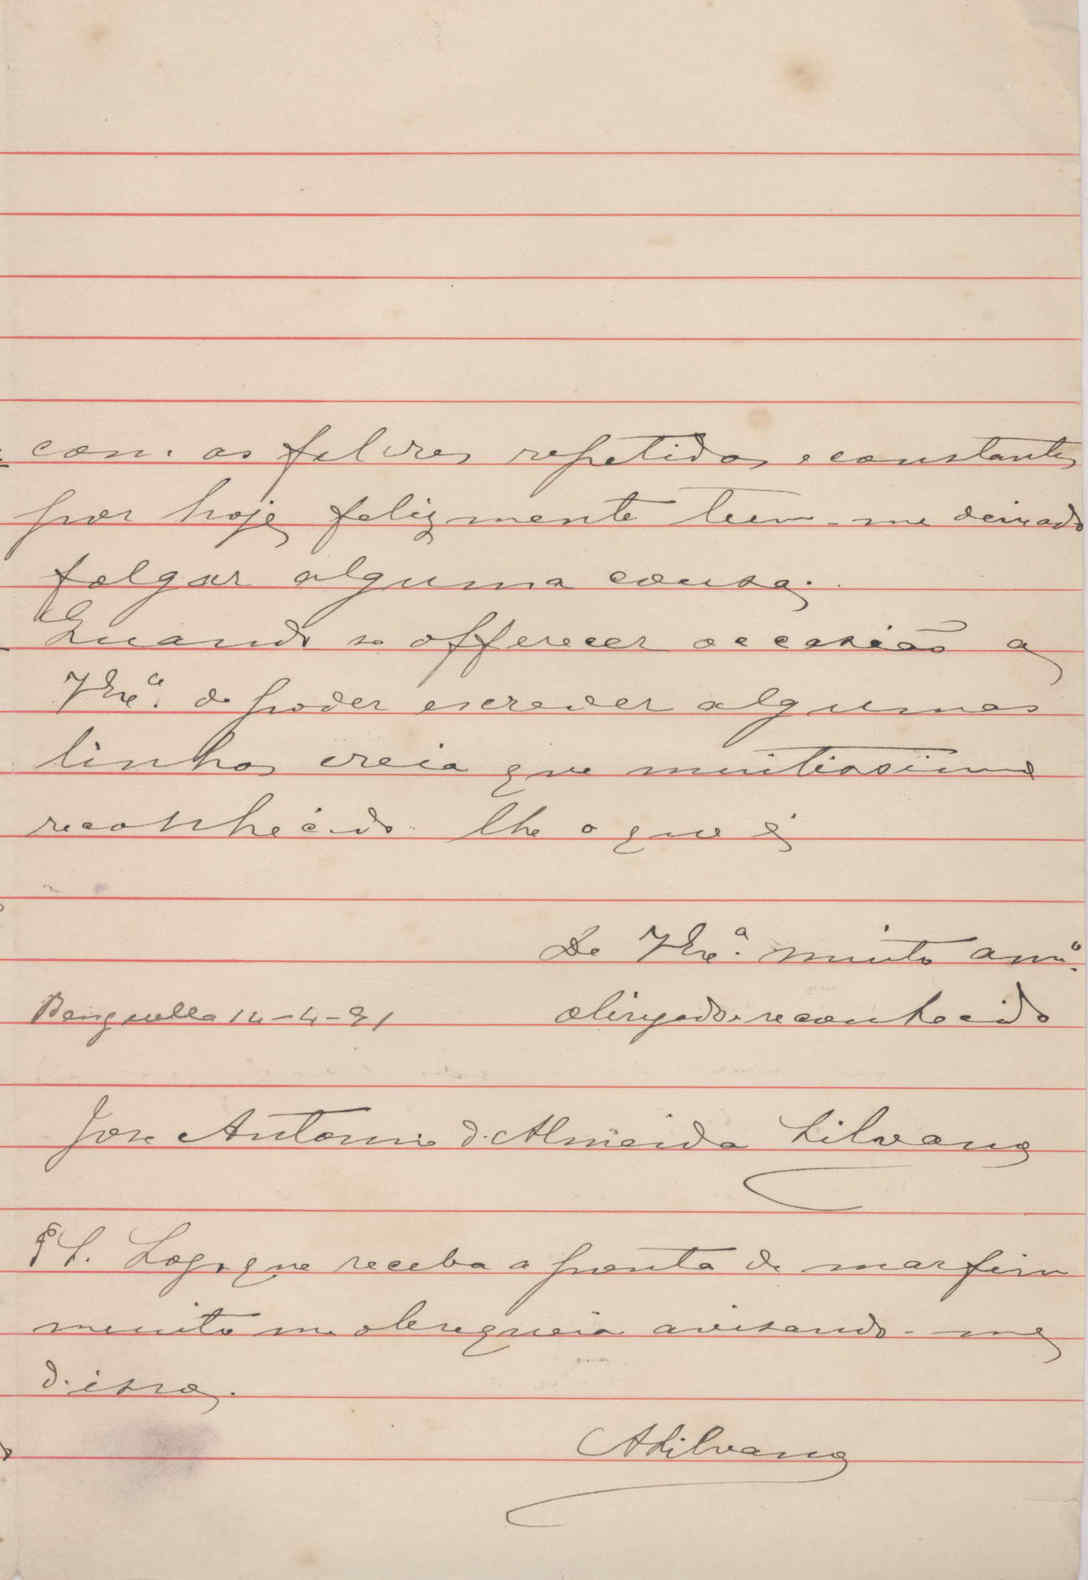 com. as febres repetidas e constantes
por hoje felizmente teem-me deixado
folgar alguma cousa.
Quando se offerecer occasião a
VExcª. de poder escrever algumas
linhas creia que muitissimo
reconhecido lhe o que é
De VExª. muito amº.
Benguella 14-4-91 obrigado e reconhecido
Jose Antonio d'Almeida Silvano
PS. Logo que receba a ponta de marfim
muito me obsequeia avisando-me
d'isso.
ASilvano